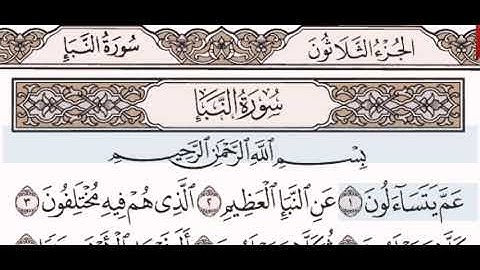 الجُزْءُ الثَّلَاثُونَ سُورَةُ النَّبَإِ
سُورَةُ النَّبَإِ
بِسْمِ اللَّهِ الرَّحْمَٰنِ الرَّحِيمِ
عَمَّ يَتَسَاءَلُونَ ١ عَنِ النَّبَإِ الْعَظِيمِ ٢ الَّذِي هُمْ فِيهِ مُخْتَلِفُونَ ٣